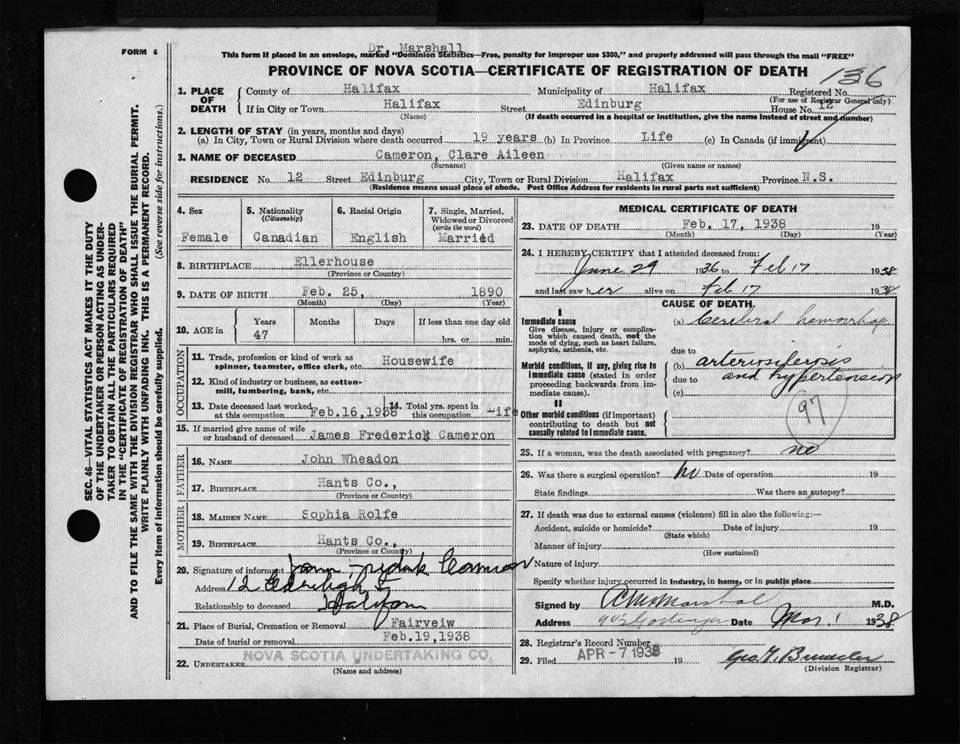 FORM 6
Dr. Marshall
This form if placed in an envelope, marked "Dominion Statistics—Free, penalty for improper use $300," and properly addressed will pass through the mail "FREE"
PROVINCE OF NOVA SCOTIA—CERTIFICATE OF REGISTRATION OF DEATH
136
1. PLACE OF DEATH
County of Halifax Municipality of Halifax Registered No.
(For use of Registrar General only)
If in City or Town Halifax Street Edinburg House No. 12
(Name) (If death occurred in a hospital or institution, give the name instead of street and number)
2. LENGTH OF STAY (in years, months and days)
(a) In City, Town or Rural Division where death occurred 19 years (b) In Province Life (c) In Canada (if immigrant)
3. NAME OF DECEASED Cameron, Clare Aileen
(Surname) (Given name or names)
RESIDENCE No. 12 Street Edinburg City, Town or Rural Division Halifax Province N.S.
(Residence means usual place of abode. Post Office Address for residents in rural parts not sufficient)
4. Sex
Female
5. Nationality
(Citizenship)
Canadian
6. Racial Origin
English
7. Single, Married, Widowed or Divorced
(write the word)
Married
8. BIRTHPLACE Ellerhouse
(Province or Country)
9. DATE OF BIRTH Feb. 25, 1890
(Month) (Day) (Year)
10. AGE in
Years Months Days If less than one day old
47 hrs. or min.
OCCUPATION
11. Trade, profession or kind of work as spinner, teamster, office clerk, etc. Housewife
12. Kind of industry or business, as cotton-mill, lumbering, bank, etc.
13. Date deceased last worked at this occupation Feb.16,1938 14. Total yrs. spent in this occupation Life
15. If married give name of wife or husband of deceased James Frederick Cameron
FATHER
16. NAME John Wheadon
17. BIRTHPLACE Hants Co.,
(Province or Country)
MOTHER
18. MAIDEN NAME Sophia Rolfe
19. BIRTHPLACE Hants Co.,
(Province or Country)
20. Signature of informant Cameron
Address 12
Relationship to deceased Halifax
21. Place of Burial, Cremation or Removal Fairveiw
Date of burial or removal Feb.19,1938
22. UNDERTAKER NOVA SCOTIA UNDERTAKING CO.
(Name and address)
MEDICAL CERTIFICATE OF DEATH
23. DATE OF DEATH Feb. 17, 1938 19
(Month) (Day) (Year)
24. I HEREBY CERTIFY that I attended deceased from:
June 29 1936 to Feb 17 1938
and last saw her alive on Feb 17 1938
CAUSE OF DEATH
I
Immediate cause
Give disease, injury or complication which caused death, not the mode of dying, such as heart failure, asphyxia, asthenia, etc.
(a) Cerebral hemorrhage
due to
Morbid conditions, if any, giving rise to immediate cause (stated in order proceeding backwards from immediate cause).
(b) arteriosclerosis
due to and hypertension
(c)
97
II
Other morbid conditions (if important) contributing to death but not causally related to immediate cause.
25. If a woman, was the death associated with pregnancy? no
26. Was there a surgical operation? no Date of operation 19
State findings Was there an autopsy?
27. If death was due to external causes (violence) fill in also the following:—
Accident, suicide or homicide? Date of injury 19
(State which)
Manner of injury
(How sustained)
Nature of injury
Specify whether injury occurred in industry, in home, or in public place
Signed by Marshall M.D.
Address Date Mar. 1 1938
28. Registrar's Record Number
29. Filed APR -7 1938 19
(Division Registrar)
SEC. 46—VITAL STATISTICS ACT MAKES IT THE DUTY
OF THE UNDERTAKER OR PERSON ACTING AS UNDER-
TAKER TO OBTAIN ALL THE PARTICULARS REQUIRED
IN THE "CERTIFICATE OF REGISTRATION OF DEATH"
AND TO FILE THE SAME WITH THE DIVISION REGISTRAR WHO SHALL ISSUE THE BURIAL PERMIT.
WRITE PLAINLY WITH UNFADING INK. THIS IS A PERMANENT RECORD.
Every item of information should be carefully supplied. (See reverse side for instructions.)